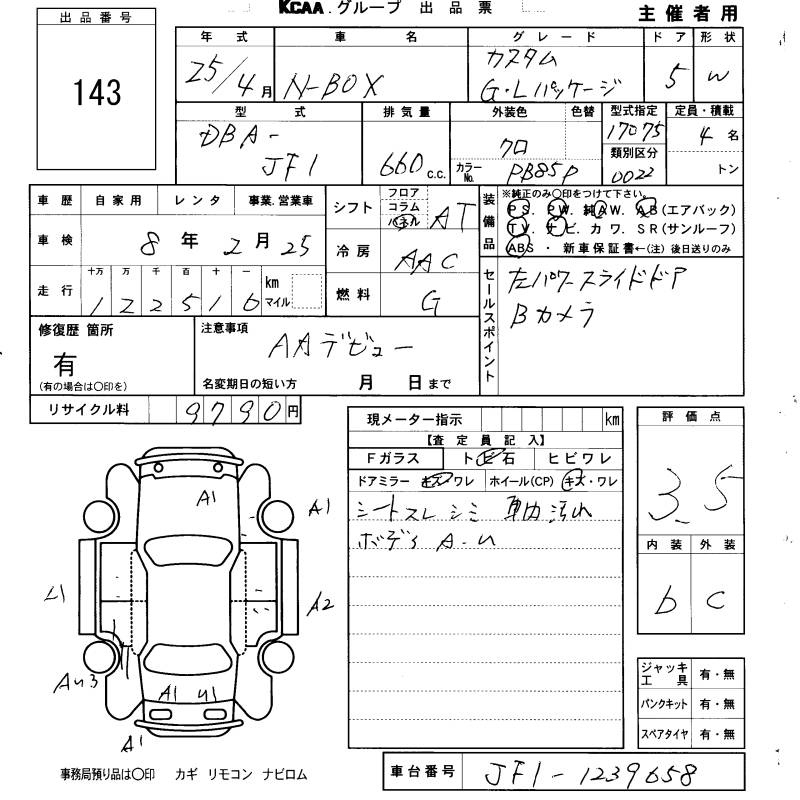 KCAA.グループ 出品票
主催者用
出品番号
143
年式 車名 グレード ドア 形状
25/4月 N-BOX カスタム G・Lパッケージ 5 W
型式 排気量 外装色 色替 型式指定 定員・積載
DBA-JF1 660 c.c. クロ 17075 4名
カラーNo. PB85P 類別区分 0022 トン
車歴 自家用 レンタ 事業.営業車
車検 8年2月25
十万 万 千 百 十 一
走行 122516 km マイル
シフト フロア コラム パネル AT
冷房 AAC
燃料 G
装備品 ※純正のみ○印をつけて下さい。
PS. PW. 純AW. AB(エアバック)
TV. ナビ. カワ. SR(サンルーフ)
ABS ・ 新車保証書←(注) 後日送りのみ
セールスポイント
左パワースライドドア
Bカメラ
修復歴 箇所
有
(有の場合は○印を)
注意事項
AAデビュー
名変期日の短い方 月 日まで
リサイクル料 9790円
現メーター指示 km
【査定員記入】
Fガラス ト ビ 石 ヒビワレ
ドアミラー キズ ワレ ホイール(CP) キズ・ワレ
シートスレ シミ 車内汚れ
ボディ A-U
評価点
3.5
内装 外装
b C
ジャッキ工具 有・無
パンクキット 有・無
スペアタイヤ 有・無
A1
A1
A2
AU3
A1 U1
A1
事務局預り品は○印 カギ リモコン ナビロム
車台番号 JF1-1239658